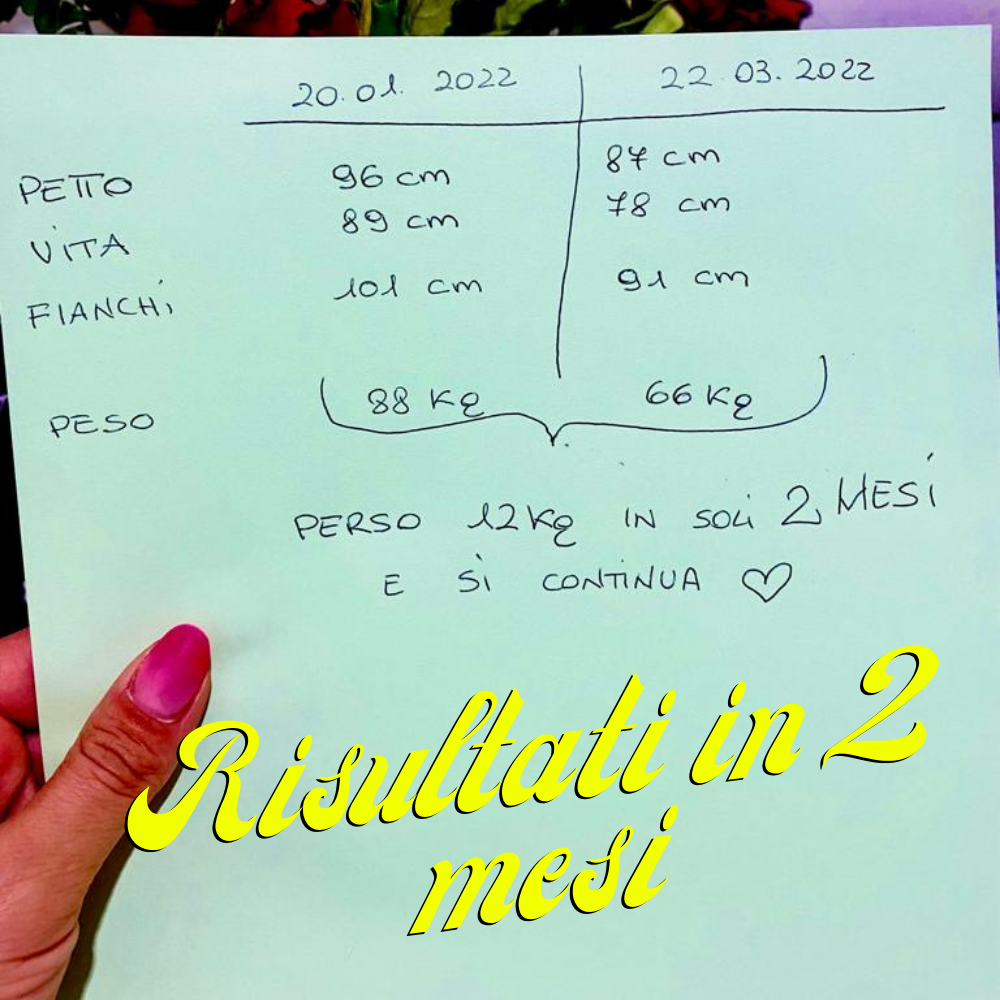 20.01. 2022 22.03.2022
PETTO 96 cm 87 cm
VITA 89 cm 78 cm
FIANCHI 101 cm 91 cm
PESO 88 Kg 66 Kg
PERSO 12 Kg IN SOLI 2 MESI
E SI CONTINUA ♡
Risultati in 2
mesi